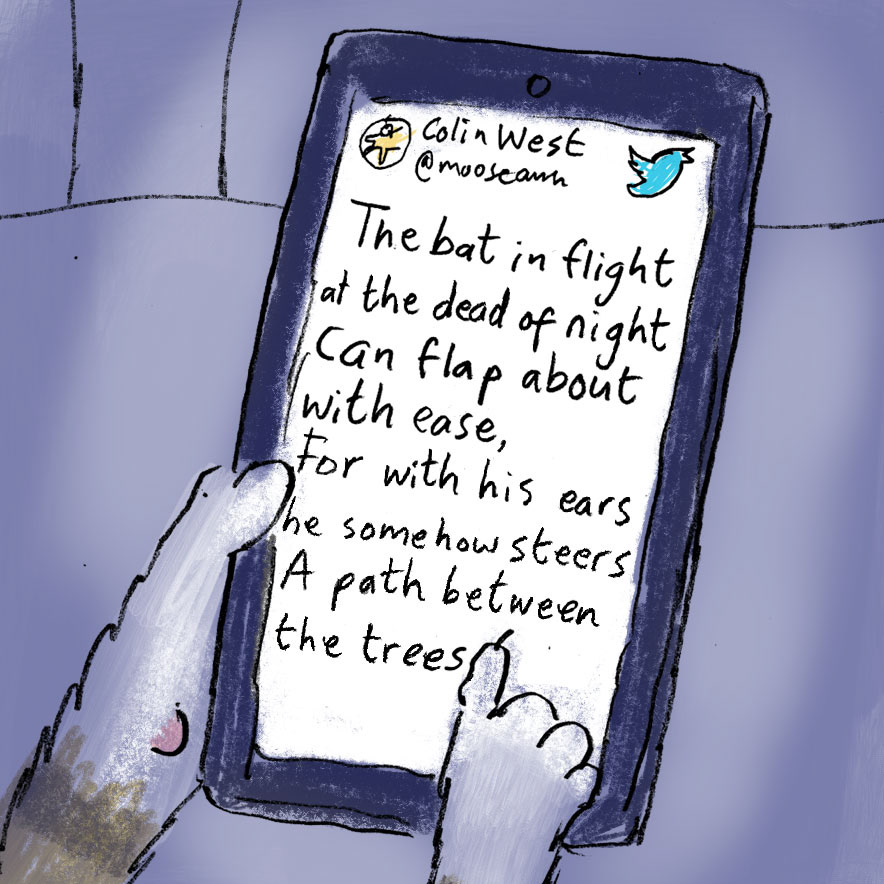 Colin West
@mooseamn
The bat in flight
at the dead of night
Can flap about
with ease,
For with his ears
he somehow steers
A path between
the trees